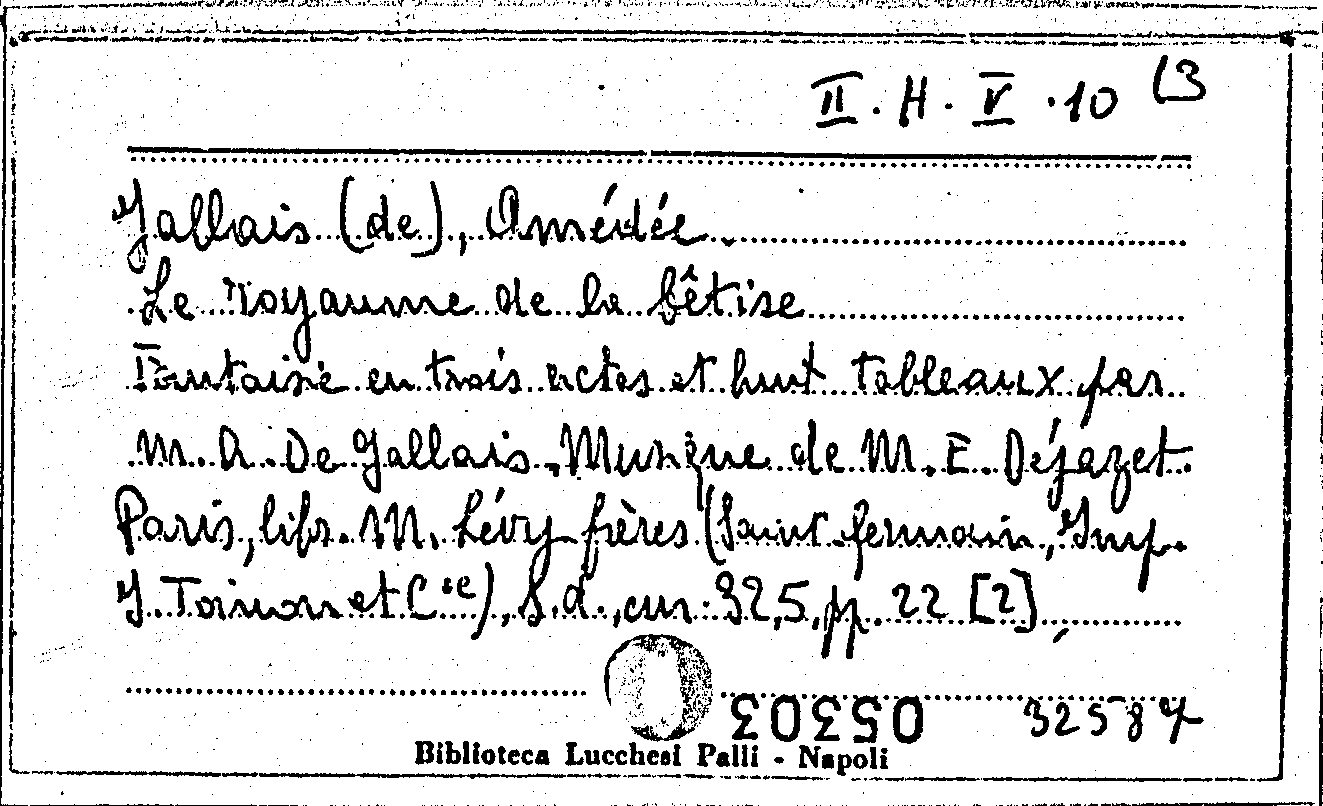 II. H. V. 10 (3
Jallais (de), Amédée
Le Royaume de la bêtise
Fantaisie en trois actes et huit tableaux par
M. A. De Jallais. Musique de M. E. Déjazet.
Paris, libr. M. Lévy frères (Saint-Germain, Imp.
J. Toinon et Cie), s.d., cm. 32,5, pp. 22 [2]
05303 32587
Biblioteca Lucchesi Palli - Napoli